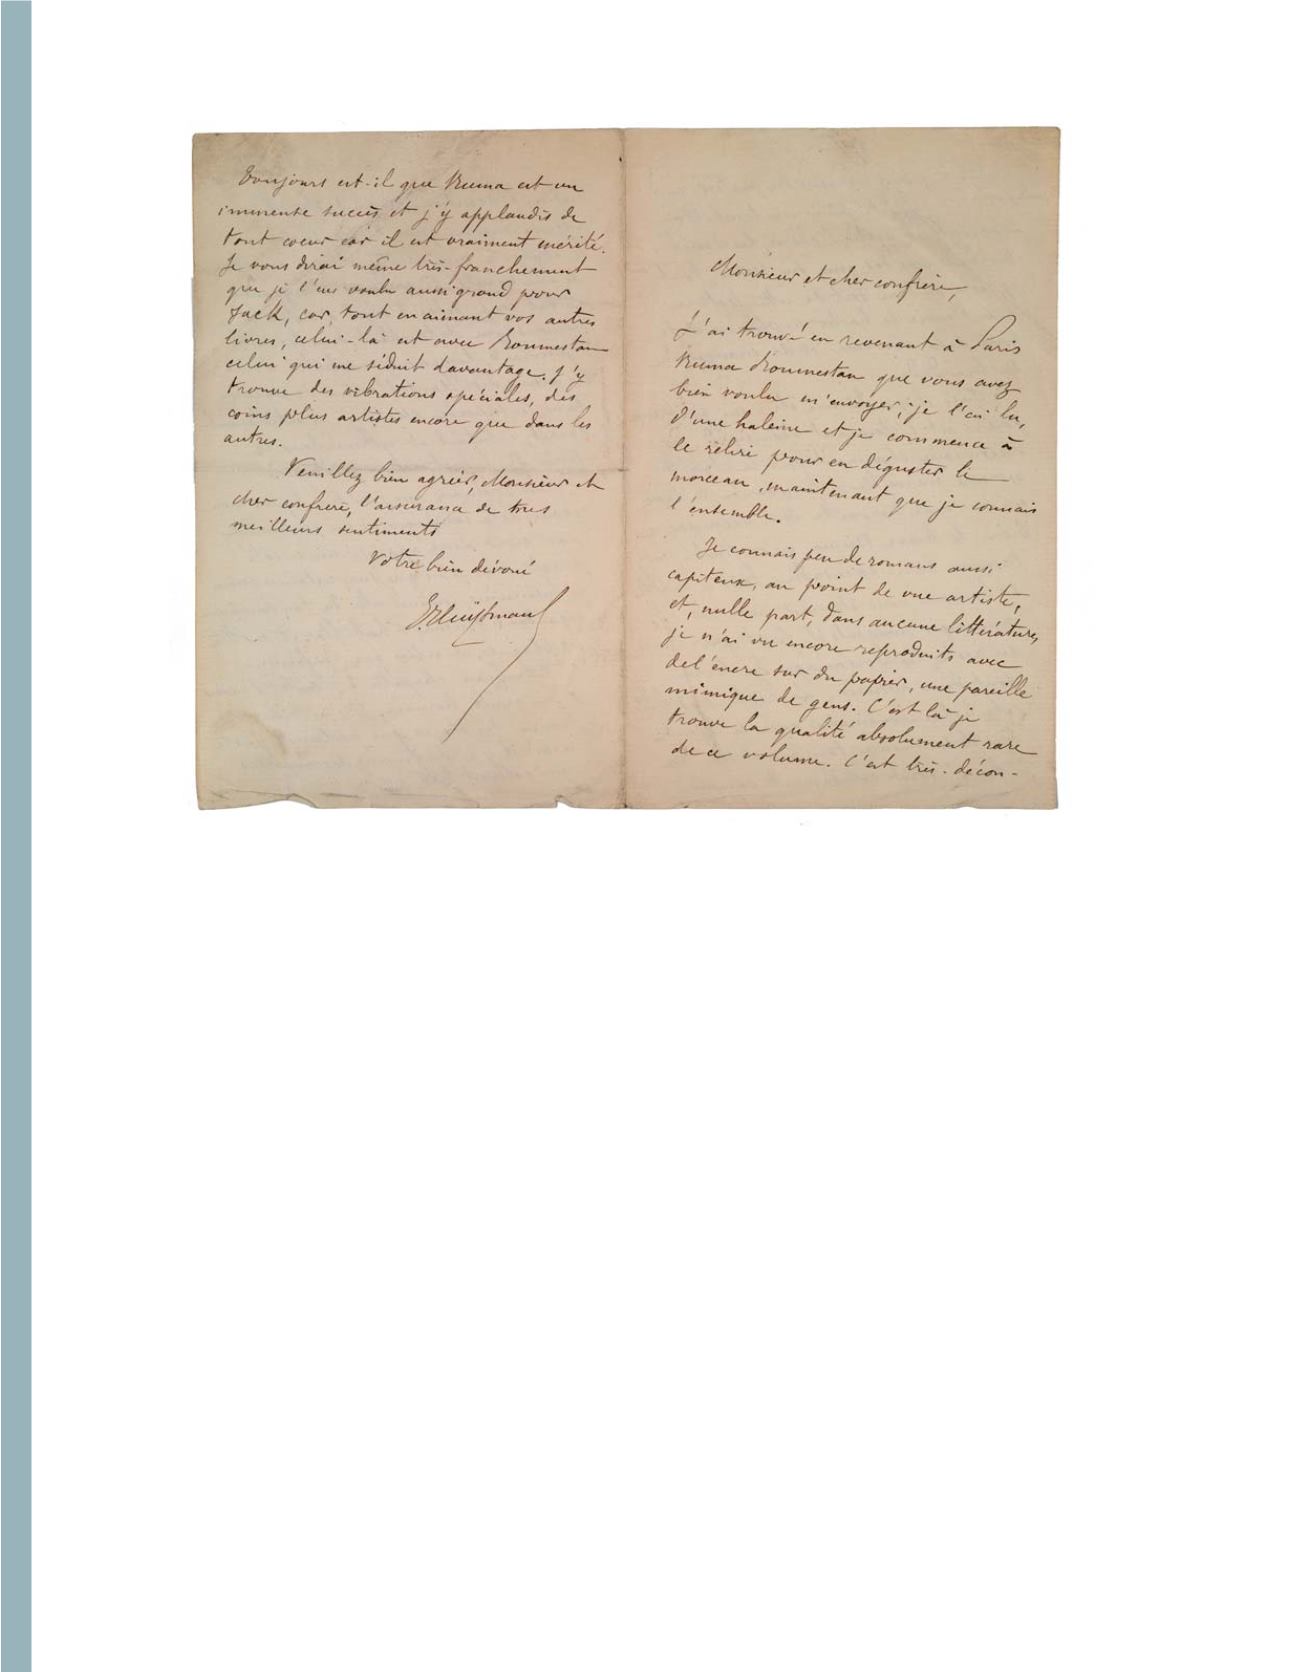 Monsieur et cher confrère,
J'ai trouvé en revenant à Paris
Numa Roumestan que vous avez
bien voulu m'envoyer; je l'ai lu,
d'une haleine et je commence à
le relire pour en déguster le
morceau, maintenant que je connais
l'ensemble.
Je connais peu de romans aussi
capiteux, au point de vue artiste,
et, nulle part, dans aucune littérature,
je n'ai vu encore reproduits avec
de l'encre sur du papier, une pareille
mimique de gens. C'est là je
trouve la qualité absolument rare
de ce volume. C'est très-décon-
Toujours est-il que Numa est un
immense succès et j'y applaudis de
tout coeur car il est vraiment mérité.
Je vous dirai même très-franchement
que je l'eus voulu aussi grand pour
Jack, car, tout en aimant vos autres
livres, celui-là est avec Roumestan
celui qui me séduit davantage. J'y
trouve des vibrations spéciales, des
coins plus artistes encore que dans les
autres.
Veuillez bien agréer, Monsieur et
cher confrère, l'assurance de mes
meilleurs sentiments
Votre bien dévoué
Huÿsmans